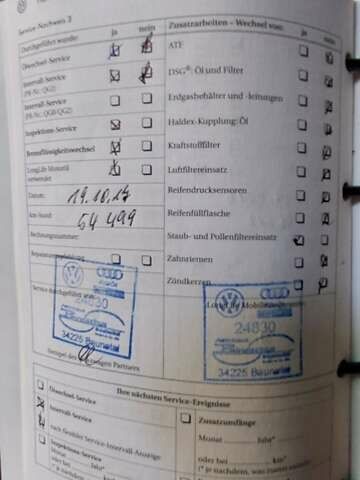 Service-Nachweis 3
Zusatzarbeiten – Wechsel von:
ja
nein
Durchgeführt wurde:
ja
nein
ATF
Ölwechsel-Service
DSG®: Öl und Filter
Intervall-Service
(PR-Nr.: QG2)
Erdgasbehälter und -leitungen
Intervall-Service
Haldex-Kupplung: Öl
Inspektions-Service
Kraftstofffilter
Bremsflüssigkeitswechsel
Luftfiltereinsatz
LongLife Motoröl
verwendet
Reifendrucksensoren
Datum: 19.10.17
Reifenfüllflasche
km-Stand: 54 499
Staub- und Pollenfiltereinsatz
Rechnungsnummer:
Zahnriemen
Zündkerzen
Service durchgeführt von:
24830
34225 Baunatal
24830
34225 Baunatal
Ihre nächsten Service-Ereignisse
Ölwechsel-Service
Zusatzumfänge
Intervall-Service
Monat Jahr*
nach flexibler Service-Intervall-Anzeige
oder bei km*
Inspektions-Service
Monat Jahr*
oder bei